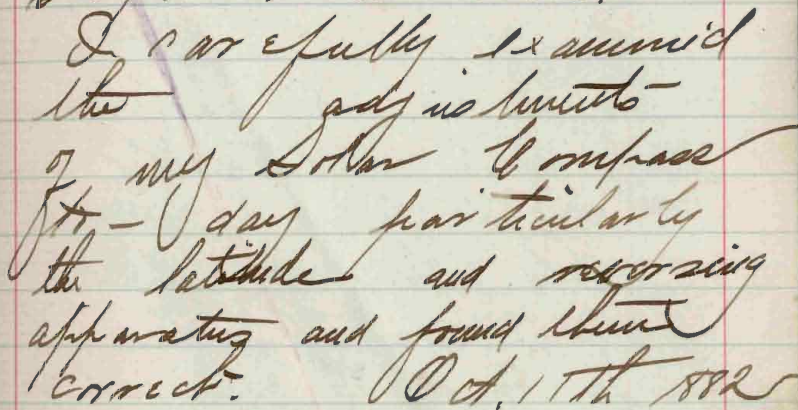 I carefully examined
the adjustments
of my Solar Compass
to-day particularly
the latitude and reversing
apparatus and found them
correct. Oct. 15th 1882